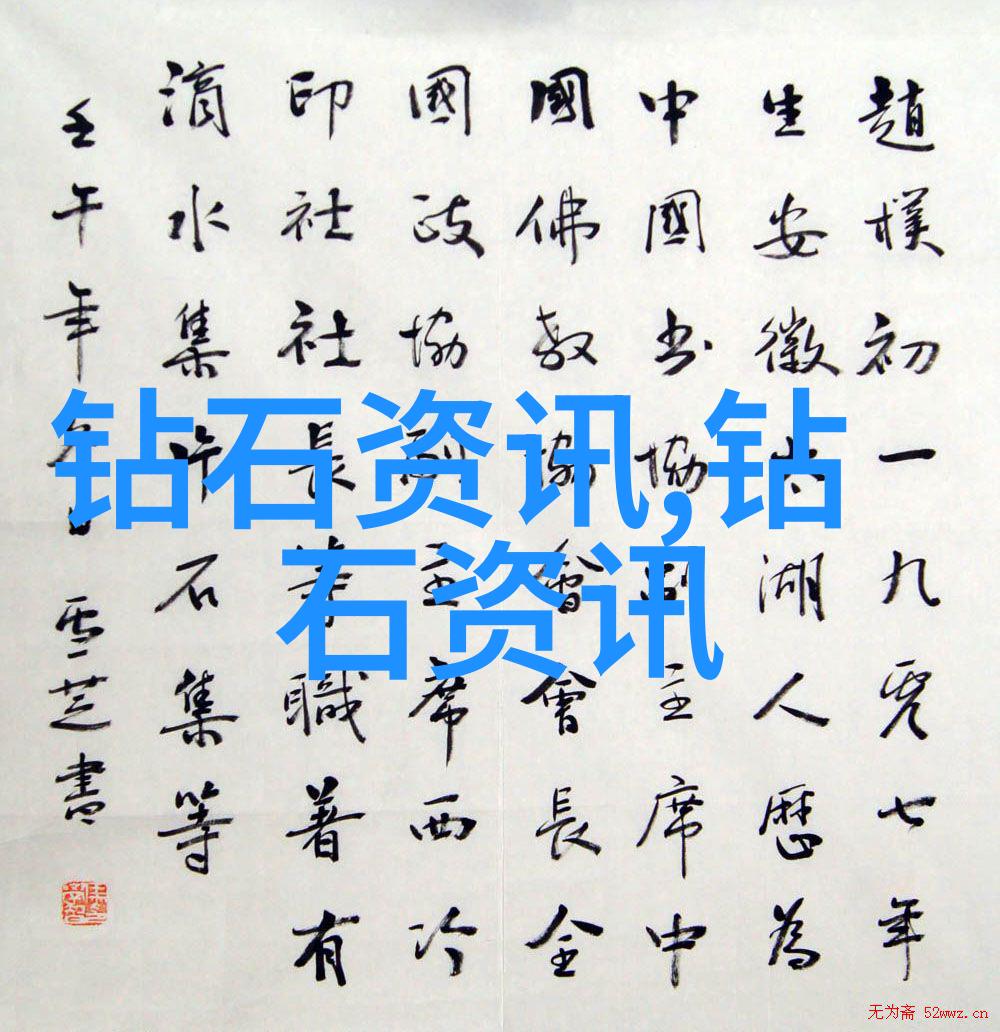 趙樸初一九零七年
生安徽太湖人歷為
中國书協副主席中
國佛教協會會長全
國政協副主席西泠
印社社長等職著有
滴水集片石集等
壬午年冬 雪芝書
钻石资讯,钻
石资讯
无为斋 52wwz.cn